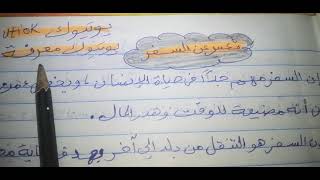 يوتيوك UtioK
يوتيوك معرفة
تعبير عن السفر
إن السفر مهم جدًا في حياة الإنسان
أنه مضيعة للوقت وهدر المال.
السفر هو التنقل من بلد إلى آخر بهدف